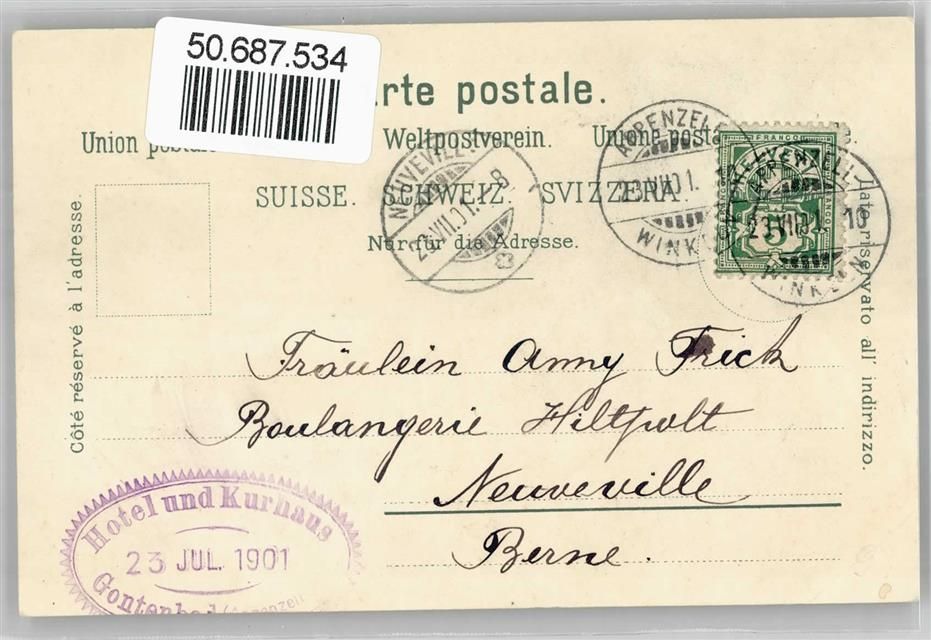 50.687.534
arte postale.
Union Weltpostverein. Unione
SUISSE. SCHWEIZ. SVIZZERA.
Nur für die Adresse.
Côté réservé à l'adresse.
Lato riservato all' indirizzo.
NEUVEVILLE
23.VII.01. 8
APPENZELL
23.VII.01.
WINKELN
FRANCO
HELVETIA
5
APPENZELL
23.VII.01. 10
WINKELN
Fräulein Anny Frick
Boulangerie Hiltpolt
Neuveville
Berne.
Hotel und Kurhaus
23 JUL. 1901
Gontenbad (Appenzell